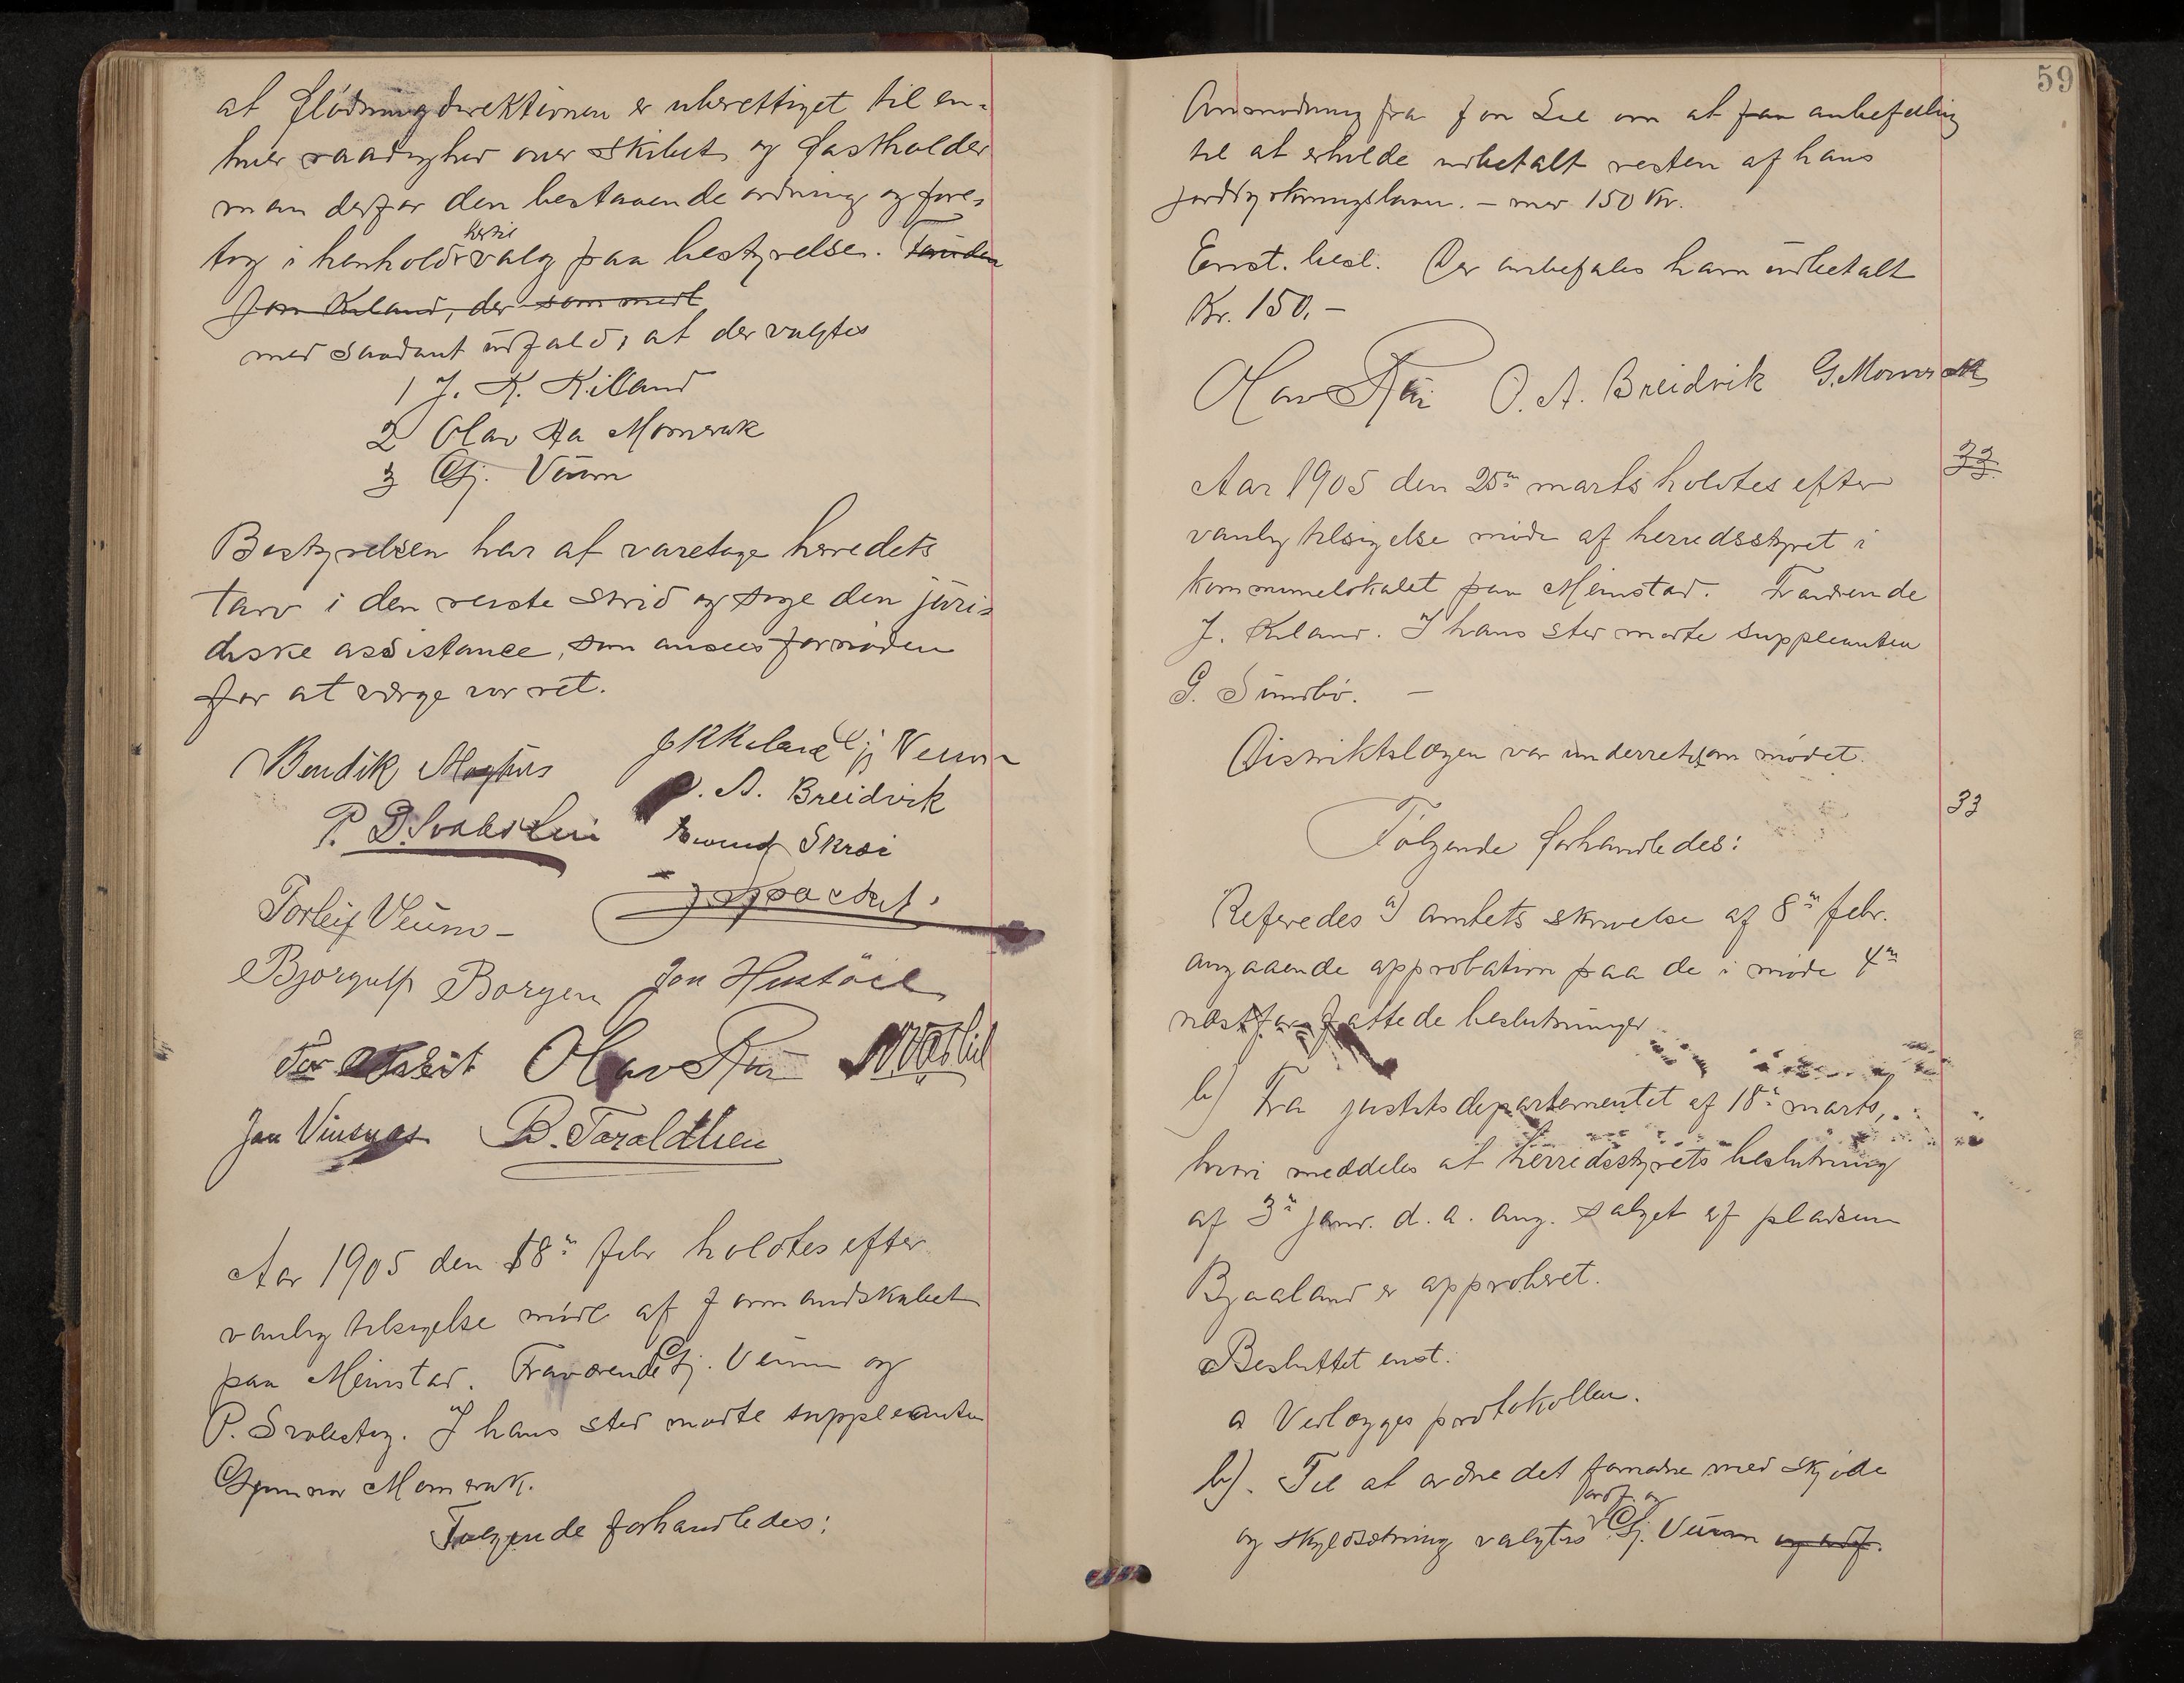 at flødningsdirektionen er uberettiget til en-
hver raadighed over skibet og fastholder
man derfor den bestaaende ordning og fore-
tog i henhold hertil valg paa bestyrelse.
Jon Kiland, der som medl
med saadant udfald, at der valgtes
1 J. K. Kiland
2 Olav Aa Momrak
3 Gj. Veum
Bestyrelsen har at varetage herredets
tarv i den reiste strid og søge den juri-
diske assistance, som ansees fornøden
for at værge vor ret.
Bendik JKKiland Gj Veum
P. D. O. A. Breidvik
Eivind Skrei
Torleif Veum
Bjørgulf Borgen Jon
Tor Olav
Jon Vinsnes B. Taraldlien
Aar 1905 den 18de febr holdtes efter
vanlig tilsigelse møde af formandskabet
paa Meinstad. Fraværende Gj. Veum og
P. Svalestog. I hans sted mødte suppleanten
Gunnar Momrak.
Følgende forhandledes:
59
Anmodning fra Jon Lie om at faa anbefaling
til at erholde udbetalt resten af hans
jorddyrkningslaan. – mer 150 Kr.
Enst. besl. Der anbefales ham udbetalt
Kr. 150.–
Olav O. A. Breidvik G. Momrak
33.
Aar 1905 den 25de marts holdtes efter
vanlig tilsigelse møde af herredsstyret i
kommunelokalet paa Meinstad. Fraværende
J. Kiland. I hans sted mødte suppleanten
G. Sundbø. –
Distriktslægen var underrettet om mødet.
33
Følgende forhandledes:
Referedes a) amtets skrivelse af 8de febr.
angaaende approbation paa de i møde 4de
næstfør fattede beslutninger
b) Fra justitsdepartementet af 18de marts,
hvori meddeles at herredsstyrets beslutning
af 3de janr. d. a. ang. salget af pladsen
Bjaaland er approberet.
Besluttet enst:
a Vedlægges protokollen.
b). Til at ordne det fornødne med skjøde
og skyldsætning valgtes ordf. og Gj. Veum og ordf.